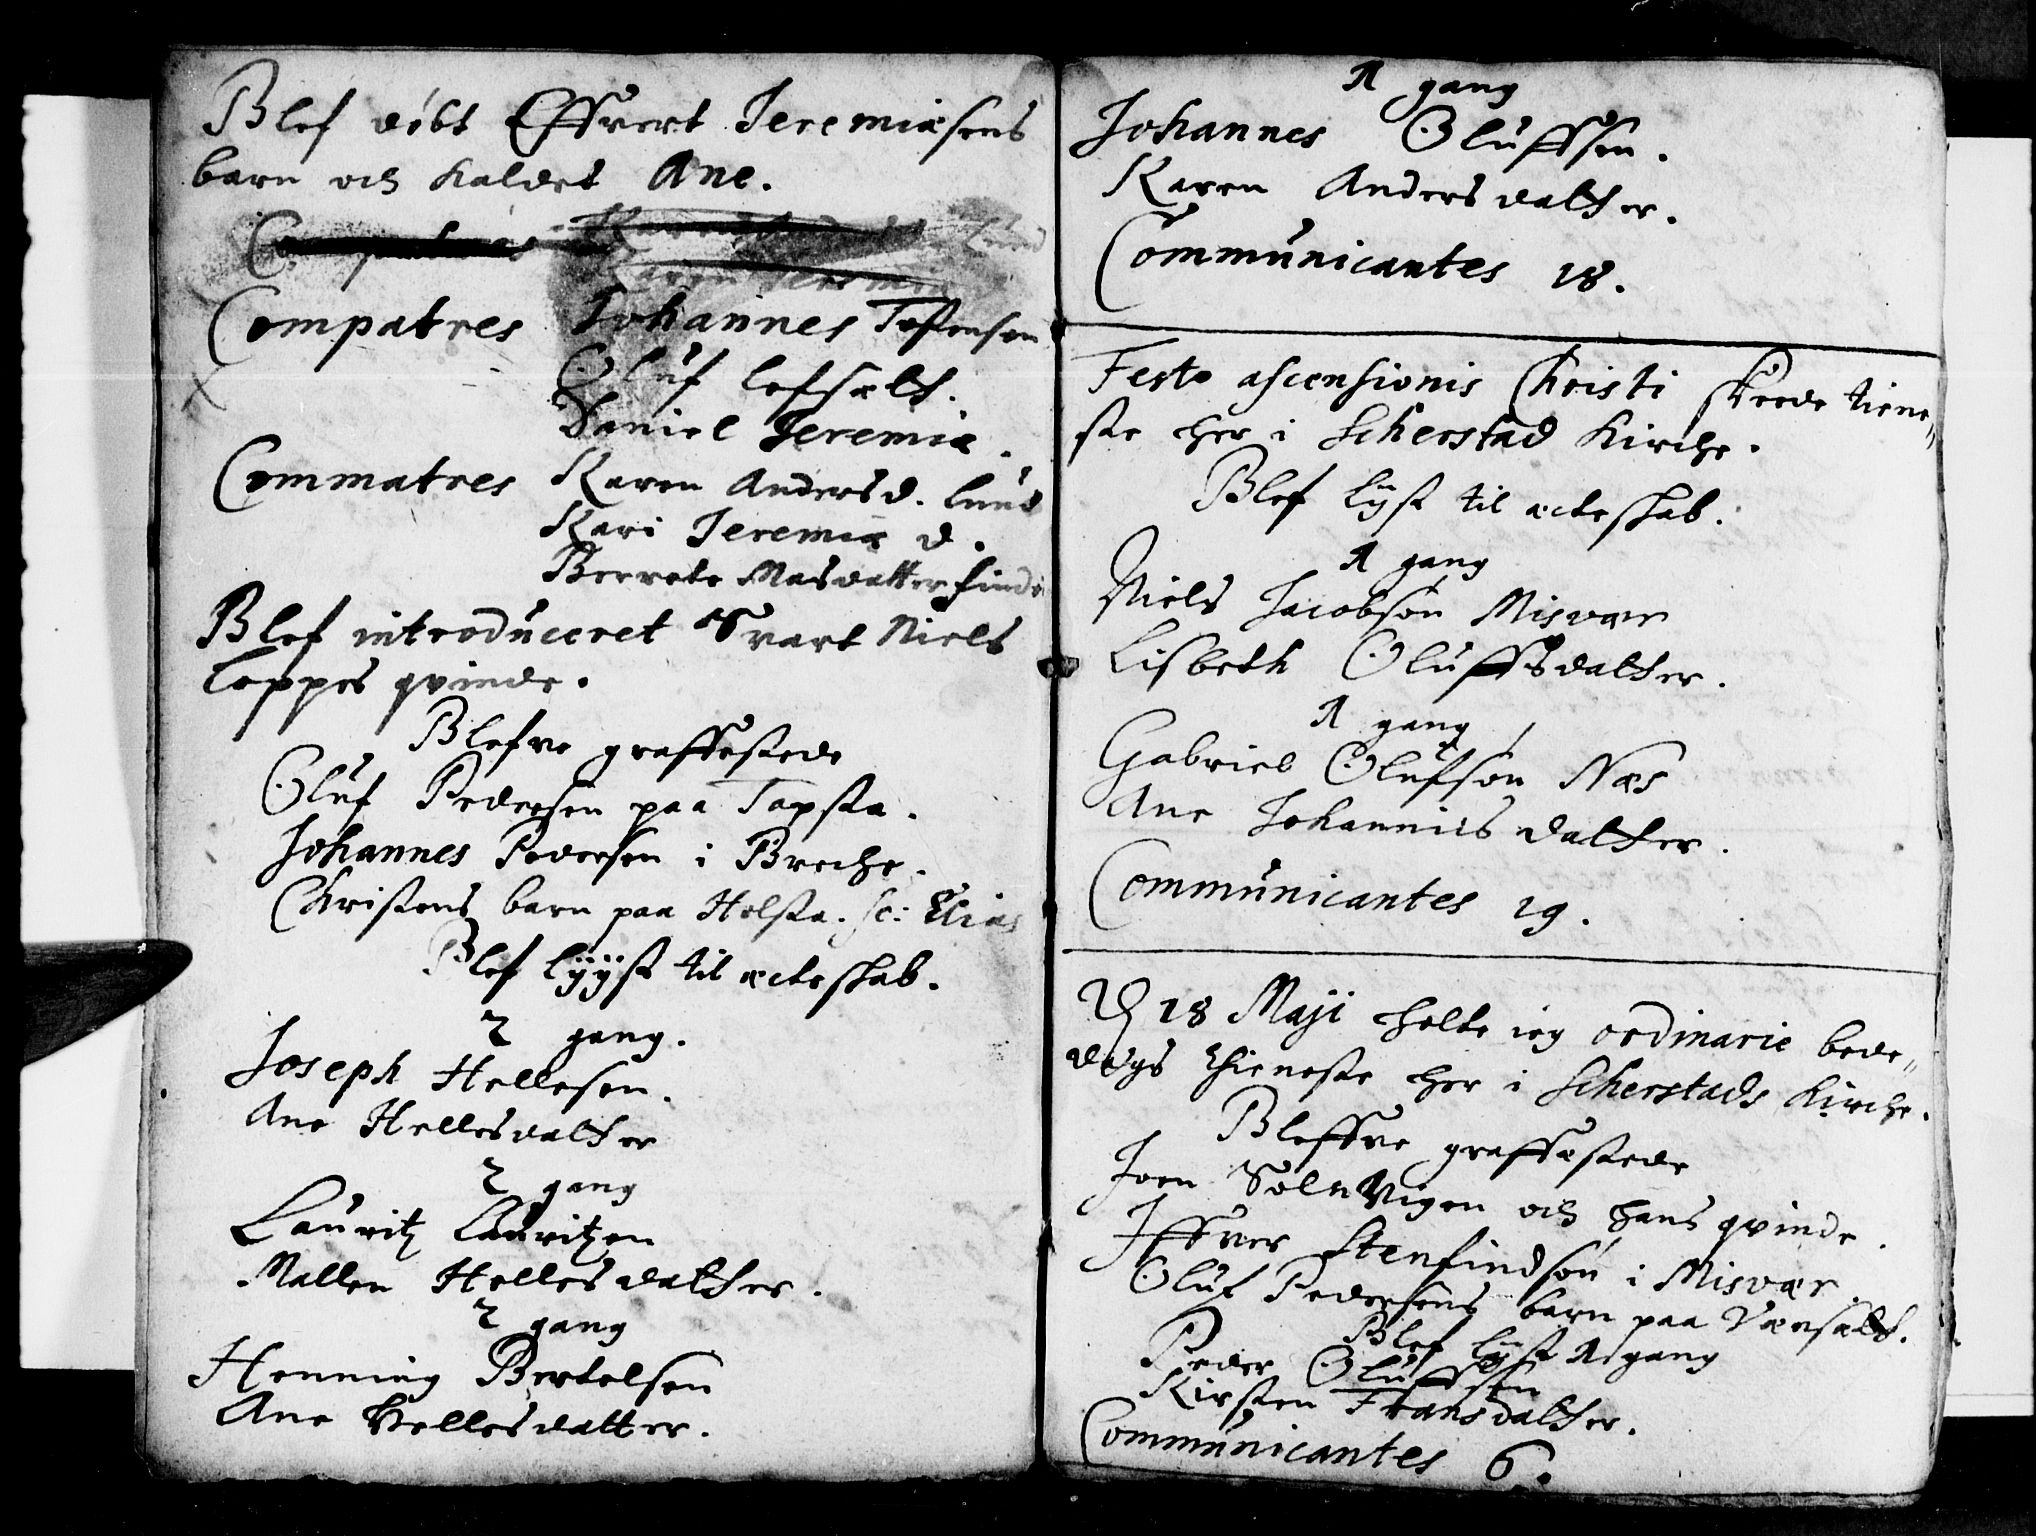 Blef døbt Effvert Jeremiæsens
barn och kaldet Ane.
Compatres Johannes Tostensen
Oluf lofsælt.
Daniel Jeremiæ.
Commatres Karen Andersd. lund
Kari Jeremiæ d.
Berrete Masdatter
Blef introduceret Svart Niels
Loppes qvinde.
Blefve graffestede
Oluf Pedersen paa Topsta.
Johannes Pedersen i Breche.
Christens barn paa Holsta. sc: Elias
Blef lyyst til ecteskab.
2 gang.
Joseph Hellesen.
Ane Hellesdatter
2 gang
Lauritz Lauritzen
Mallen Hellesdatter.
2 gang
Henning Bertelsen
Ane Hellesdatter.
1 gang
Johannes Oluffsen.
Karen Andersdatter.
Communicantes 18.
Festo ascensionis Christi skeede tiene„
ste her i Scherstad Kirche.
Blef lyst til ecteskab.
1 gang
Niels Jacobsøn Misvær
Lisbeth Oluffsdatter.
1 gang
Gabriel Olufsøn Næs
Ane Johannisdatter.
Communicantes 19.
D 18 Maji holte ieg ordinarie bede„
dags thieneste her i Scherstads Kirche.
Bleffve graffæstede
Joen Solnvigen och hans qvinde.
Iffver Stenfindsøn i Misvær.
Oluf Pedersens barn paa Værsælt.
Blef lyst 1 gang
Peder Oluffsen
Kirsten Fransdatter.
Communicantes 6.